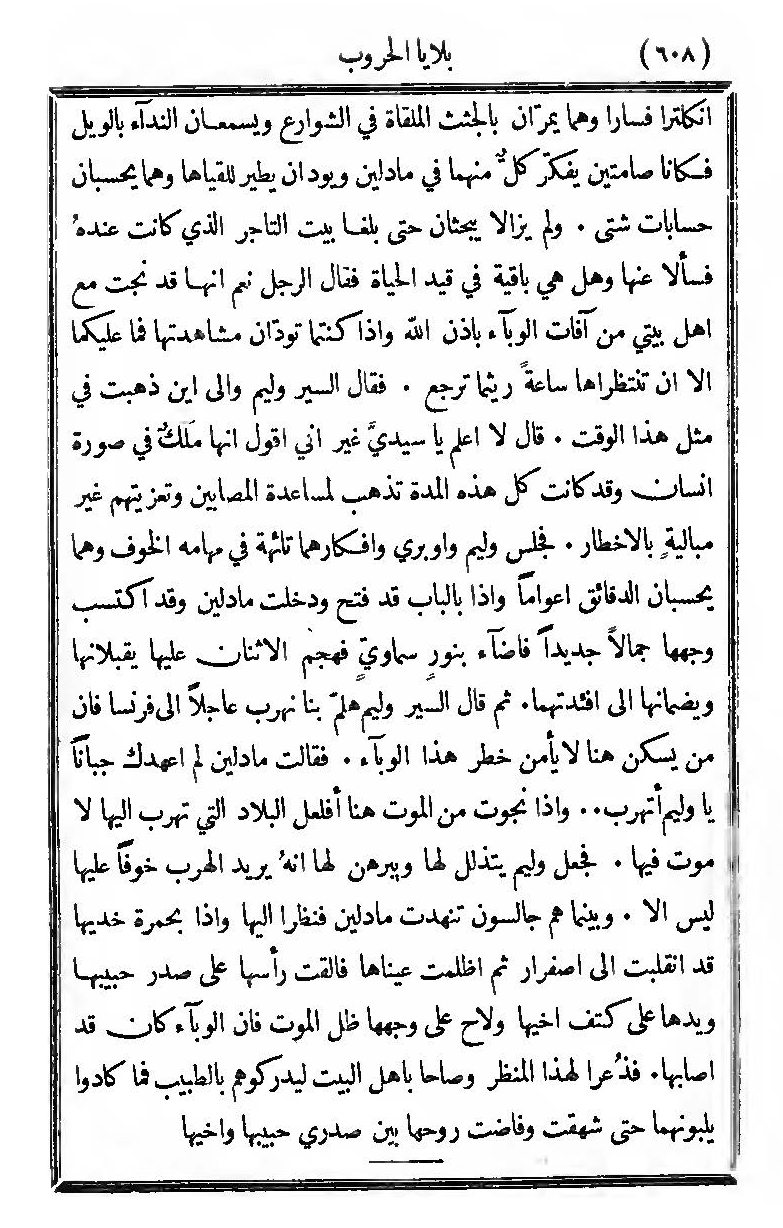 (٦٠٨) بلايا الحروب
انكلترا فسارا وهما يمرّان بالجثث الملقاة في الشوارع ويسمعان الندآء بالويل
فكانا صامتين يفكّر كلٌّ منهما في مادلين ويودان يطير للقياها وهما يحسبان
حسابات شتى . ولم يزالا يبحثان حتى بلغا بيت التاجر الذي كانت عندهُ
فسألا عنها وهل هي باقية في قيد الحياة فقال الرجل نعم انها قد نجت مع
اهل بيتي من آفات الوبآء باذن الله واذا كنتما تودّان مشاهدتها فما عليكما
الا ان تنتظراها ساعةً ريثما ترجع . فقال السير وليم والى اين ذهبت في
مثل هذا الوقت . قال لا اعلم يا سيديَّ غير اني اقول انها مَلَكٌ في صورة
انسان وقد كانت كل هذه المدة تذهب لمساعدة المصابين وتعزيتهم غير
مباليةٍ بالاخطار . فجلس وليم واوبري وافكارهما تائهة في مهامه الخوف وهما
يحسبان الدقائق اعواماً واذا بالباب قد فتح ودخلت مادلين وقد اكتسب
وجهها جمالاً جديداً فاضآء بنورٍ سماويٍّ فهجم الاثنان عليها يقبلانها
ويضمانها الى افئدتهما. ثم قال السير وليم هلمّ بنا نهرب عاجلاً الى فرنسا فان
من يسكن هنا لا يأمن خطر هذا الوبآء . فقالت مادلين لم اعهدك جباناً
يا وليم أتهرب.. واذا نجوت من الموت هنا أفلعل البلاد التي تهرب اليها لا
موت فيها . فجعل وليم يتذلل لها ويبرهن لها انهُ يريد الهرب خوفاً عليها
ليس الا . وبينما هم جالسون تنهدت مادلين فنظرا اليها واذا بحمرة خديها
قد انقلبت الى اصفرار ثم اظلمت عيناها فالقت رأسها على صدر حبيبها
ويدها على كتف اخيها ولاح على وجهها ظل الموت فان الوبآء كان قد
اصابها. فذُعرا لهذا المنظر وصاحا باهل البيت ليدركوهم بالطبيب فما كادوا
يلبونهما حتى شهقت وفاضت روحها بين صدري حبيبها واخيها